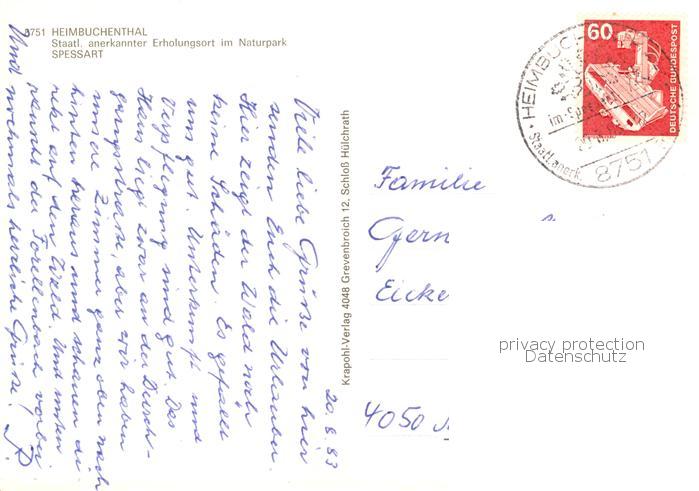 8751 HEIMBUCHENTHAL
Staatl. anerkannter Erholungsort im Naturpark
SPESSART
60
DEUTSCHE BUNDESPOST
HEIMBUCH
im Spess
Staatl. anerk.
8751
20.8.83
Viele liebe Grüße von hier
senden Euch die Urlauber.
Hier zeigt der Wald noch
keine Schäden. Es gefällt
uns gut. Unterkunft und
Verpflegung sind gut. Das
Haus liegt zwar an der Durch-
gangsstraße, aber wir haben
unsere Zimmer ganz oben nach
hinten heraus und schauen di-
rekt auf den Wald. Und unten
rauscht der Forellenbach vorbei.
Und nochmals herzliche Grüße.
Krapohl-Verlag 4048 Grevenbroich 12, Schloß Hülchrath
Familie
Gern
Eicke
4050
privacy protection
Datenschutz